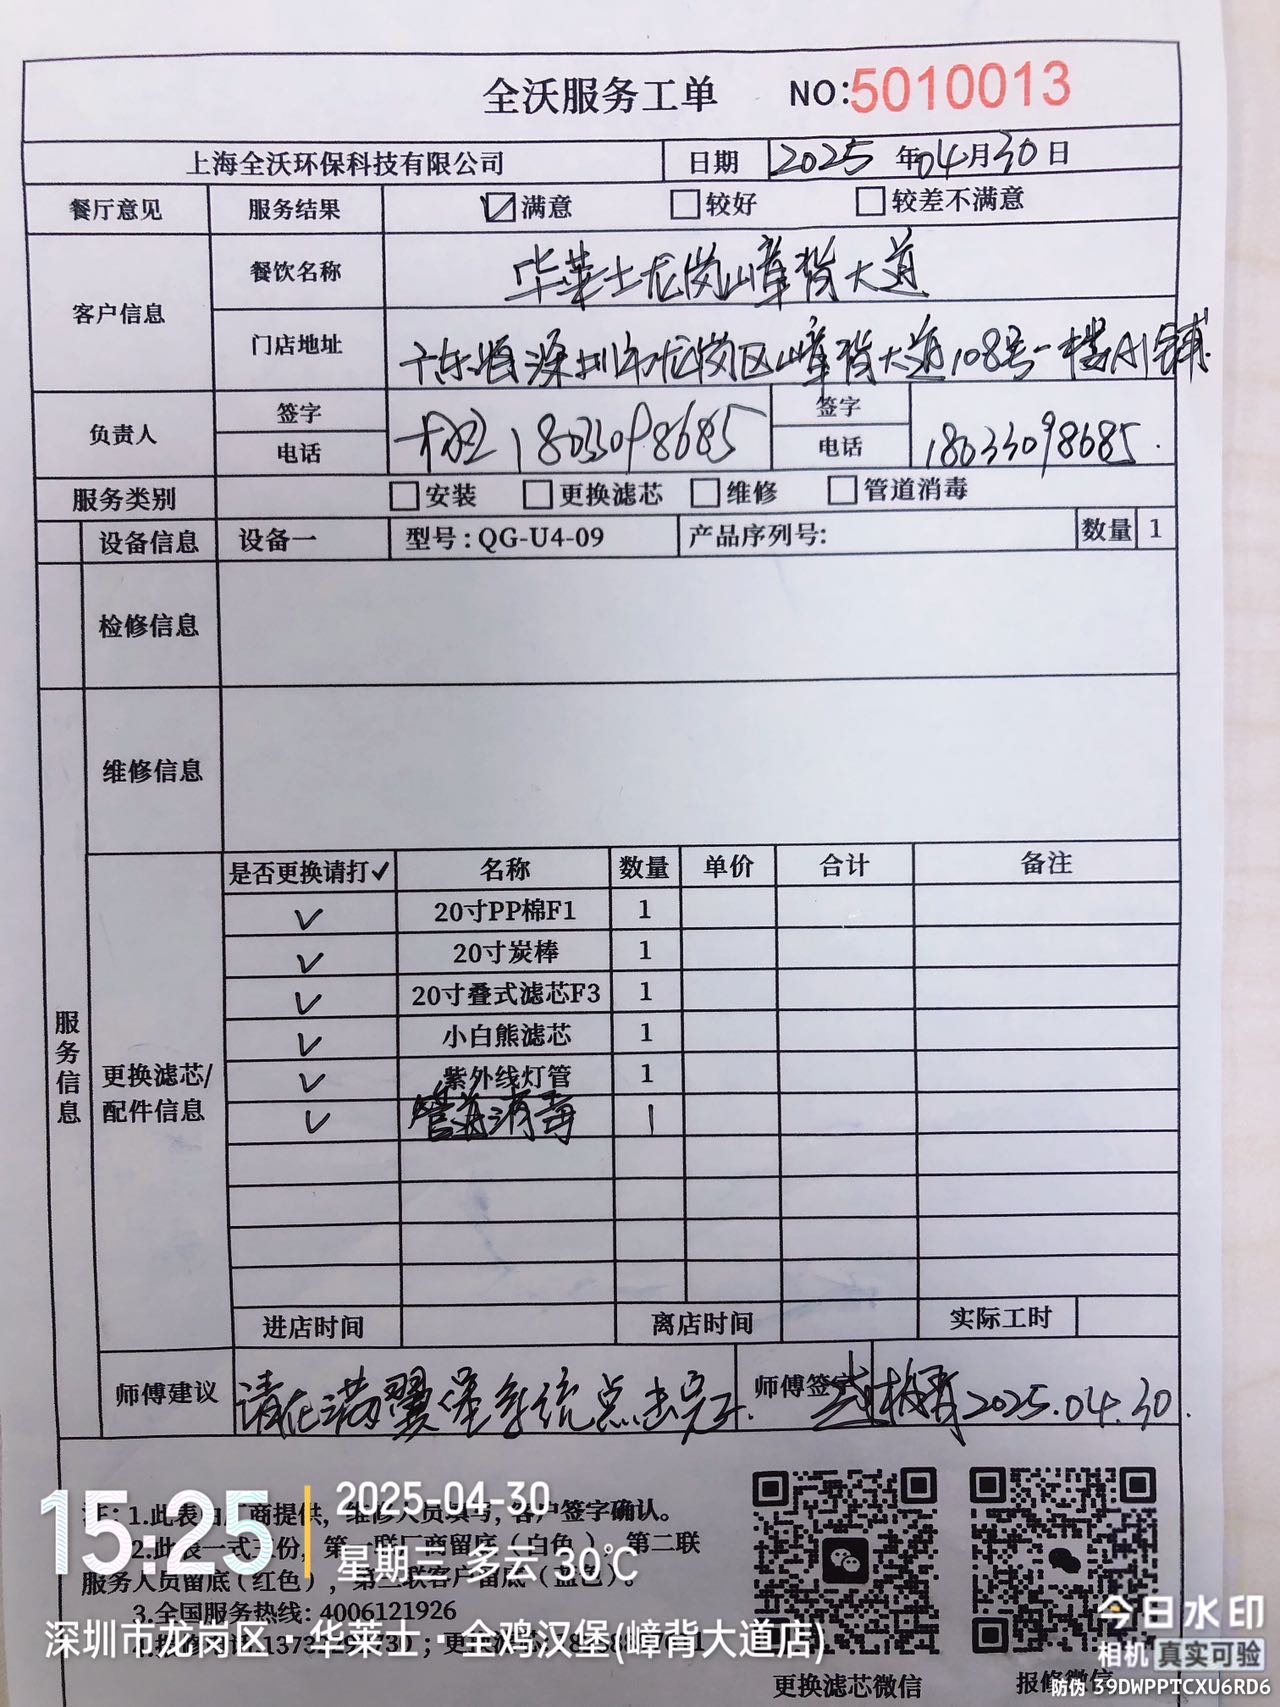 全沃服务工单 NO:5010013
上海全沃环保科技有限公司 日期 2025年04月30日
餐厅意见 服务结果 满意 较好 较差不满意
客户信息 餐饮名称 华莱士龙岗嶂背大道
门店地址 广东省深圳市龙岗区嶂背大道108号一楼A1铺
负责人 签字 18033098685 签字
电话 电话 18033098685.
服务类别 安装 更换滤芯 维修 管道消毒
设备信息 设备一 型号:QG-U4-09 产品序列号: 数量 1
检修信息
维修信息
服务信息
更换滤芯/
配件信息
是否更换请打✓ 名称 数量 单价 合计 备注
✓ 20寸PP棉F1 1
✓ 20寸炭棒 1
✓ 20寸叠式滤芯F3 1
✓ 小白熊滤芯 1
✓ 紫外线灯管 1
✓ 管道消毒 1
进店时间 离店时间 实际工时
师傅建议 请在满翼堡系统点击完工. 师傅签字 2025.04.30.
注:1.此表由厂商提供,维修人员填写,客户签字确认。
2.此表一式三份,第一联厂商留底(白色),第二联
服务人员留底(红色),第三联客户留底(蓝色)。
3.全国服务热线:4006121926
更换滤芯微信 报修微信
15:25 2025-04-30
星期三 多云 30℃
深圳市龙岗区·华莱士·全鸡汉堡(嶂背大道店)
今日水印
相机 真实可验
防伪 39DWPPTCXU6RD6